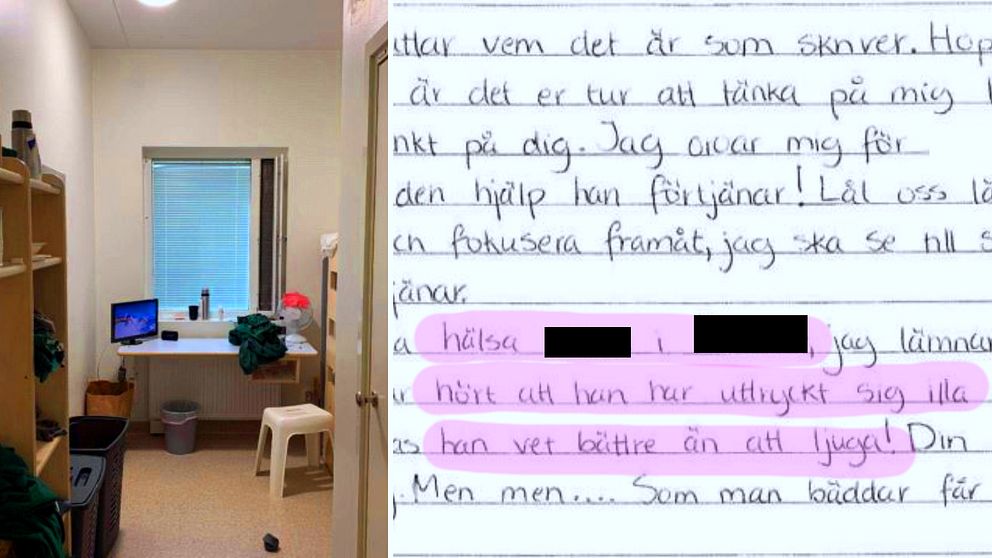 ttar vem det är som skriver. Hop
är det er tur att tänka på mig
nkt på dig. Jag oroar mig för
den hjälp han förtjänar! Låt oss lä
ch fokusera framåt, jag ska se till s
jänar.
a hälsa i , jag lämnar
r hört att han har uttryckt sig illa
as han vet bättre än att ljuga! Din
. Men men.... Som man bäddar får